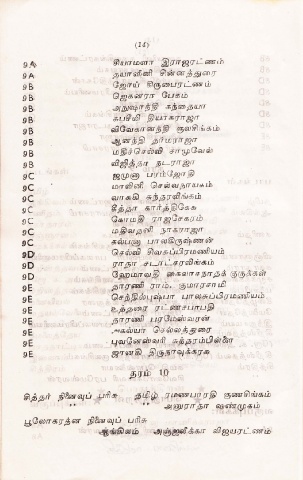 (14)
9A சியாமளா இராஜரட்ணம்
9A தயாளினி சின்னத்துரை
9B ஜோய் கிருபைரட்ணம்
9B ஜெகசுரா பேகம்
9B அறுஷாந்தி கந்தையா
9B சுபாஜினி தியாகராஜா
9B விவேகானந்தி குலசிங்கம்
9B ஆனந்தி தர்மராஜா
9B மதிச்செல்வி சாமுவேல்
9B விஜித்தா நடராஜா
9C ஜமுனா பரம்ஜோதி
9C மாலினி செல்வநாயகம்
9C வாசுகி சுந்தரலிங்கம்
9C கீத்தா கார்த்திகேசு
9C கோமதி ராஜசேகரம்
9C மதிவதனி நாகராஜா
9C கல்பனா பாலகிருஷ்ணன்
9D செல்வி சிவசுப்பிரமணியம்
9D ராதா சடாட்சரலிங்கம்
9D ஹேமாவதி கைலாசநாதக் குருக்கள்
9E தாரணி ராம். குமாரசாமி
9E செந்தில்புஷ்பா பாலசுப்பிரமணியம்
9E உத்தரை ரட்ணசபாபதி
9E தாரணி பரமேஸ்வரன்
9E அகல்யா செல்லத்துரை
9E புவனேஸ்வரி சுந்தரம்பிள்ளை
9E ஜானகி திருநாவுக்கரசு
தரம் 10
சித்தர் நினைவுப் பரிசு தமிழ் ரமணபாரதி குணசிங்கம்
" " அனுராதா ஷண்முகம்
பூலோகரத்ன நினைவுப் பரிசு
ஆங்கிலம் அஞ்ஜலீக்கா விஜயரட்ணம்